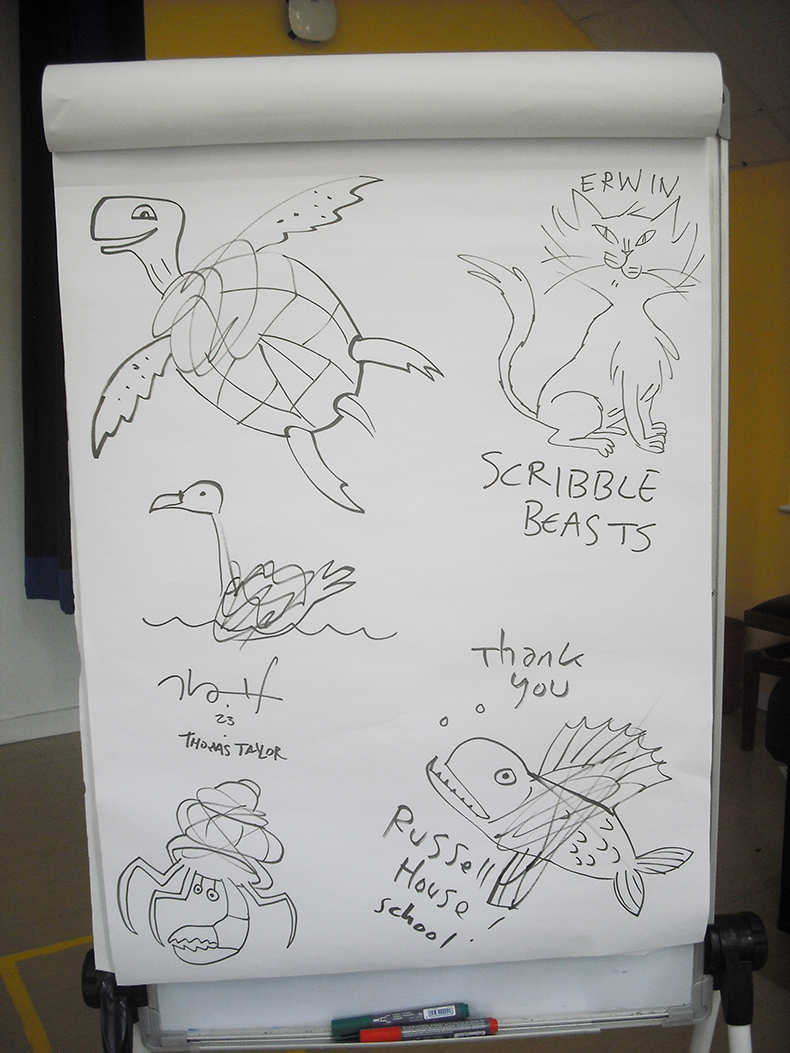 ERWIN
SCRIBBLE
BEASTS
Thank
you
23
THOMAS TAYLOR
Russell
House
school!